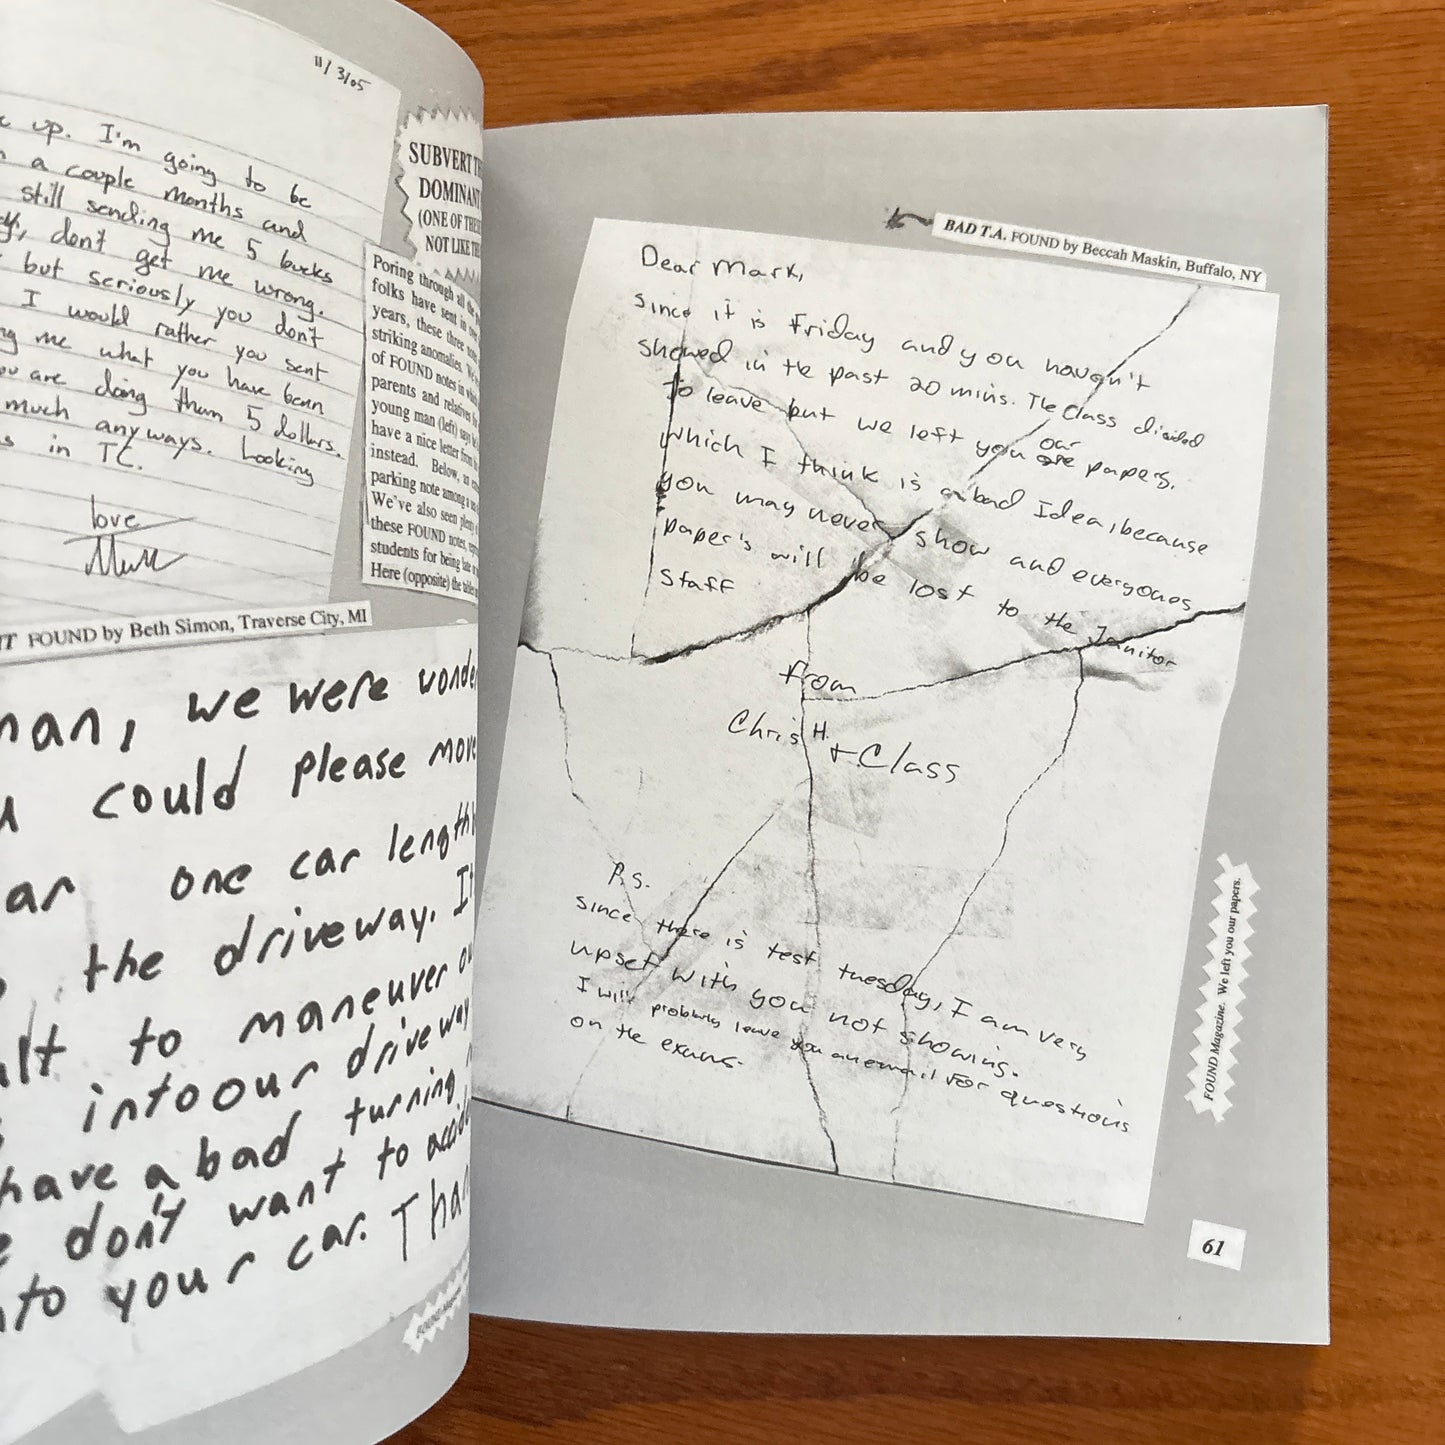 11/3/05
up. I'm going to be
a couple months and
still sending me 5 bucks
don't get me wrong.
but seriously you don't
I would rather you sent
me what you have been
are doing than 5 dollars.
much anyways. Looking
in TC.
love
SUBVERT
DOMINANT
(ONE OF THESE
NOT LIKE THE
Poring through all the
folks have sent in
years, these three
striking anomalies.
of FOUND notes in
parents and relatives
young man (left) says
have a nice letter from
instead. Below, an
parking note among a
We've also seen
these FOUND notes,
students for being late
Here (opposite) the
FOUND by Beth Simon, Traverse City, MI
man, we were
could please move
one car length
the driveway.
to maneuver
into our driveway
have a bad turning
don't want to
to your car.
BAD T.A. FOUND by Beccah Maskin, Buffalo, NY
Dear Mark,
Since it is Friday and you havan't
showed in the past 20 mins. The Class dicided
to leave but we left you our papers.
which I think is a bad Idea, because
you may never show and everyones
paper's will be lost to the Janitor
Staff
From
Chris H. + Class
P.S.
Since there is test tuesday, I am very
upset with you not showing.
I will probably leave you an email For questions
on the exams.
FOUND Magazine. We left you our papers.
61